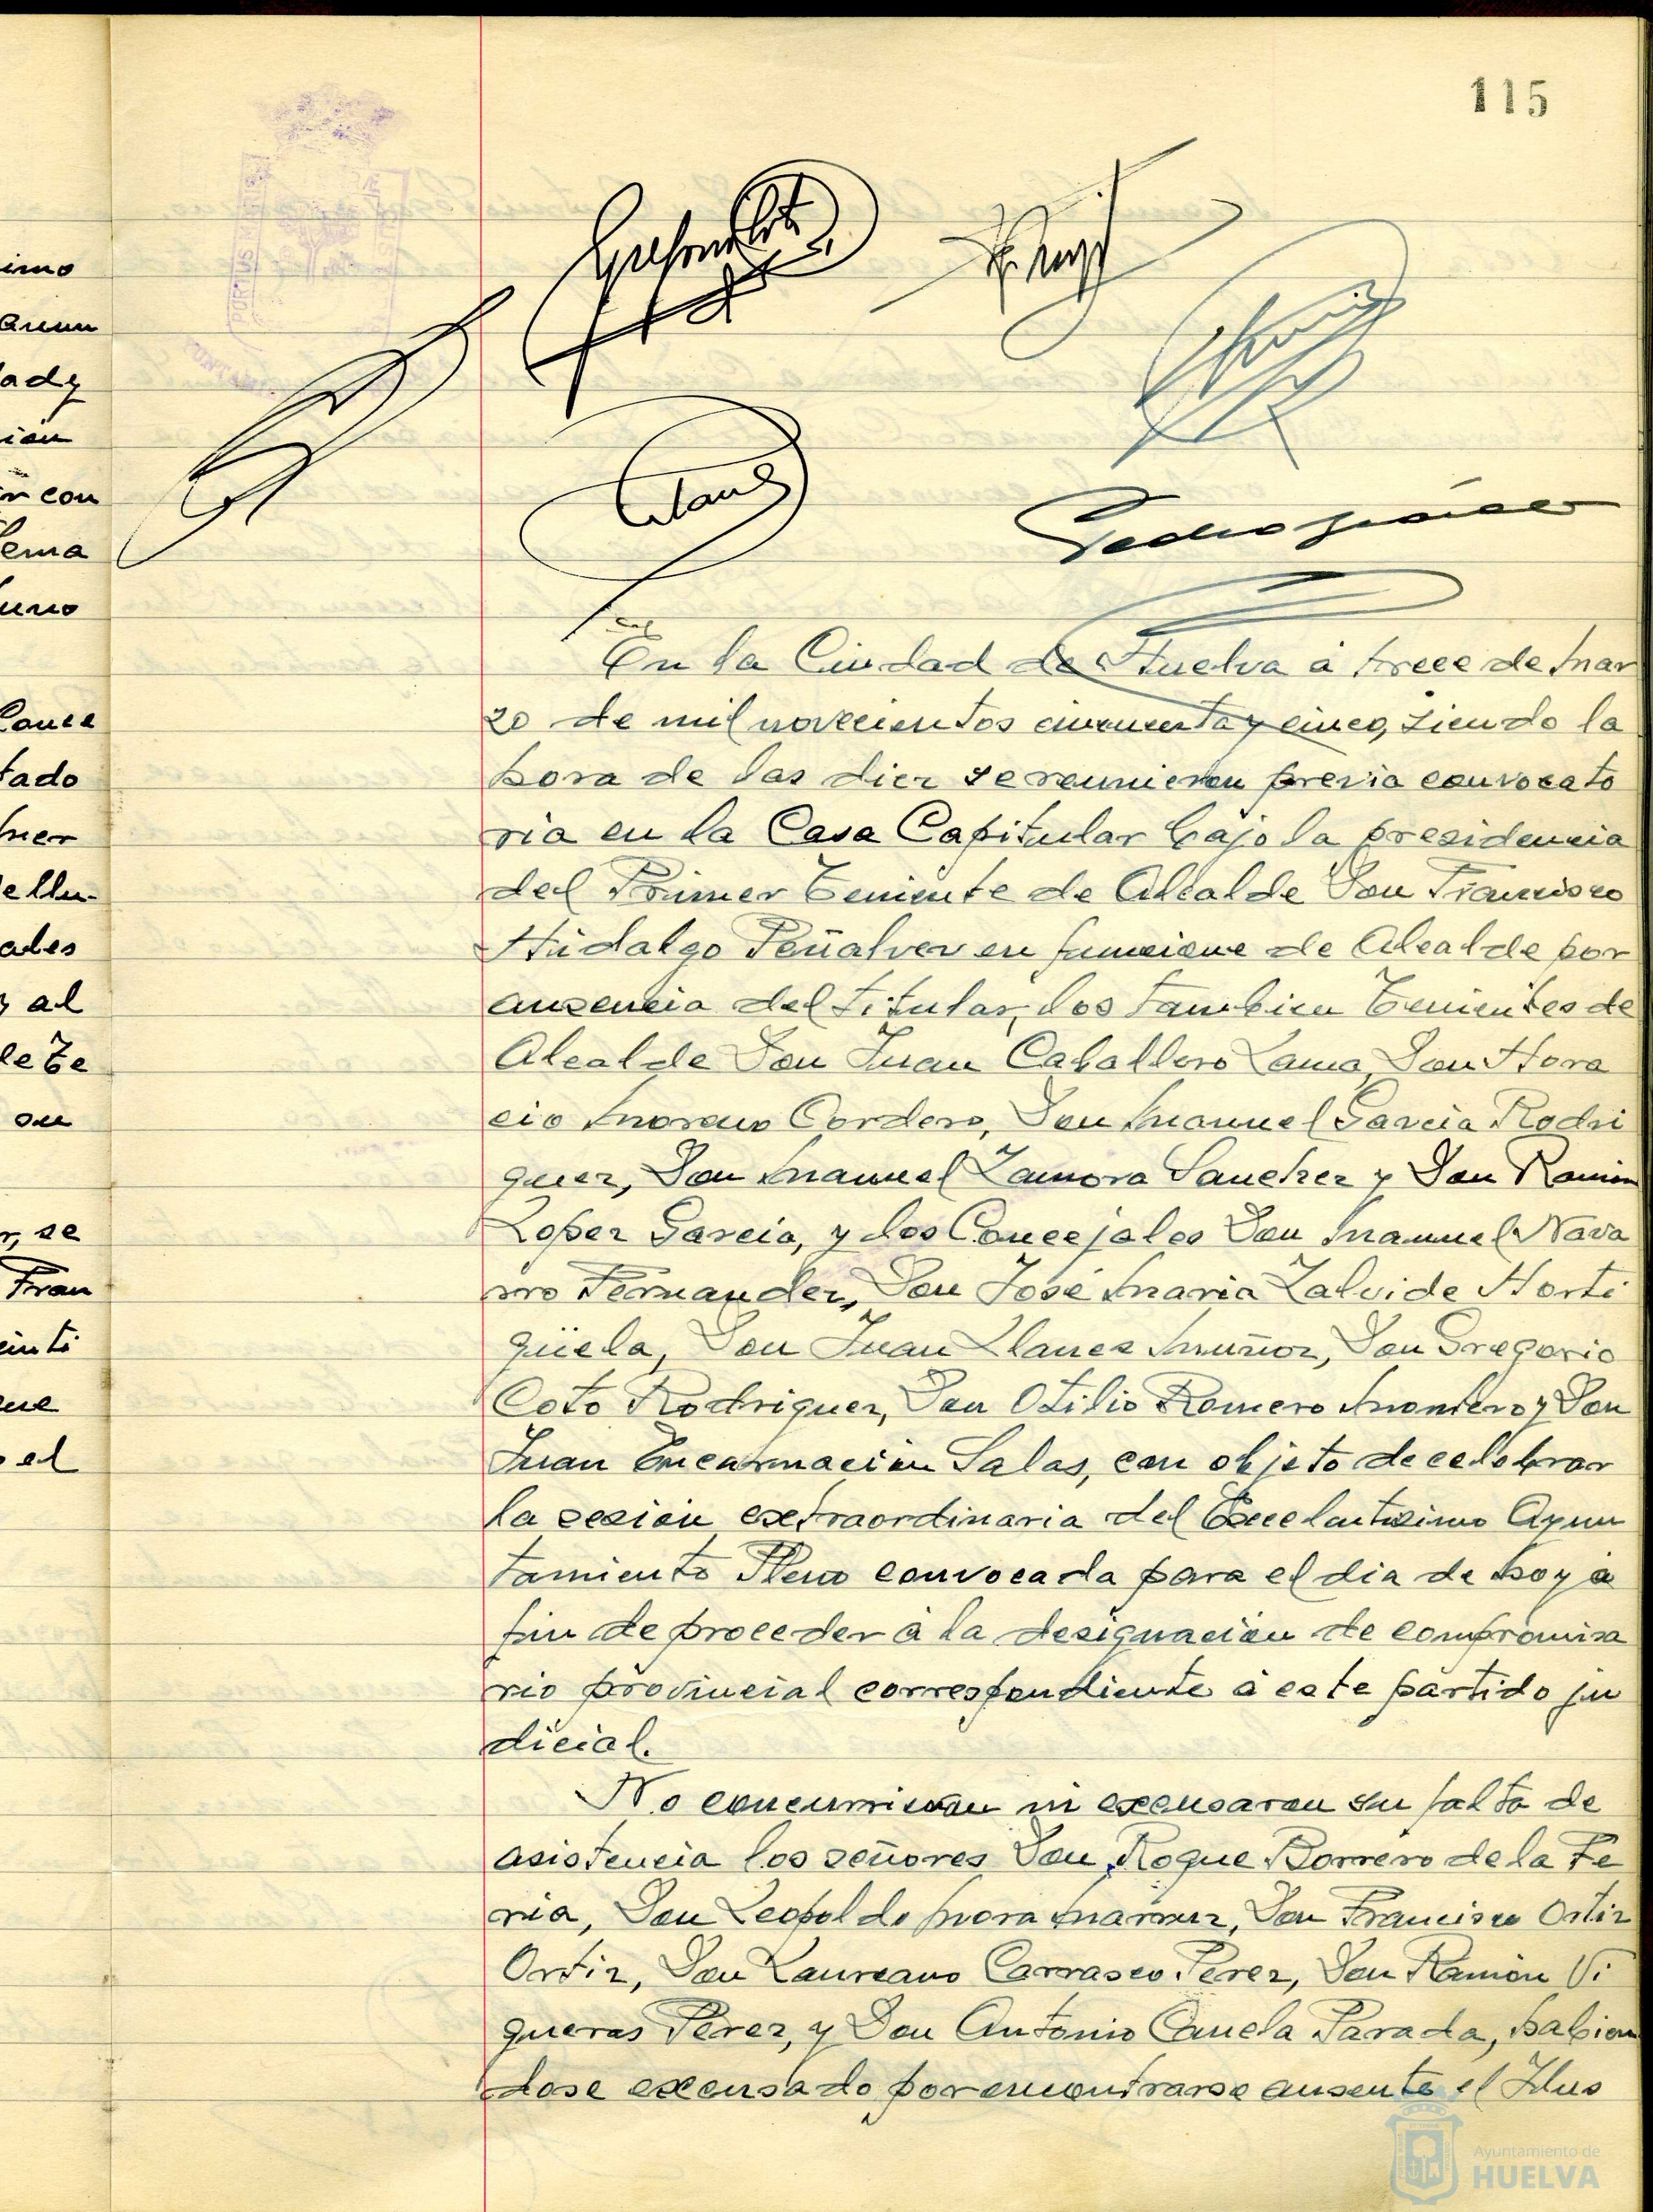 115
imo
ady
ian
r con
uno
Conce
tado
mer
e Ilu-
ales
y al
de Te
su
r, se
Fran
einti
que
el
En la Ciudad de Huelva á trece de Mar
zo de mil novecientos cincuenta y cinco, siendo la
hora de las diez se reunieron previa convocato
ria en la Casa Capitular bajo la presidencia
del Primer Teniente de Alcalde Don Francisco
Hidalgo Peñalver en funcione de Alcalde por
ausencia del titular, los tambien Tenientes de
Alcalde Don Juan Caballero Lama, Don Hora
cio Moreno Cordero, Don Manuel Garcia Rodri
guez, Don Manuel Zamora Sanchez y Don Ramon
Lopez Garcia, y los Concejales Don Manuel Nava
rro Fernandez, Don José Maria Zalvide Horti
güela, Don Juan Llanes Muñoz, Don Gregorio
Coto Rodriguez, Don Otilio Romero Montero y Don
Juan Encarnación Salas, con objeto de celebrar
la sesión extraordinaria del Excelentisimo Ayun
tamiento Pleno convocada para el dia de hoy á
fin de proceder á la designación de compromisa
rio provincial correspondiente á este partido ju
dicial.
No concurrieron ni excusaron su falta de
asistencia los señores Don Roque Borrero de la Fe
ria, Don Leopoldo Mora Don Francisco Ortiz
Ortiz, Don Laureano Carrasco Perez, Don Ramón Vi
gueras Perez, y Don Antonio Canela Parada, habien
dose excusado por encontrarse ausente el Ilus
Ayuntamiento de
HUELVA